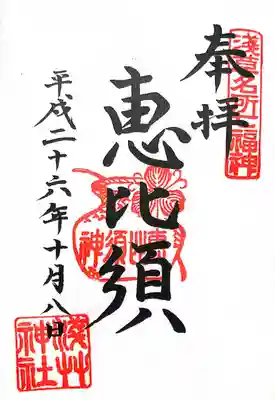 奉拝
淺草名所七福神
恵比須
恵比須神
平成二十六年十月八日
淺艸神社